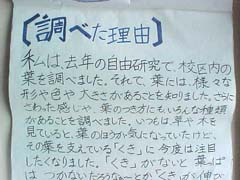 〔調べた理由〕
私は、去年の自由研究で、校区内の
葉を調べました。それで、葉には、様々な
形や色や大きさがあることを知りました。さらに
さわった感じや、葉のつき方にもいろんな種類
があることを調べました。いつもは、草や木を
見ていると、葉のほうが気になっていたけど、
その葉を支えている「くき」に今度は注目
したくなりました。「くき」がないと葉っぱは
つかないだろうな〜とか「くき」が伸び